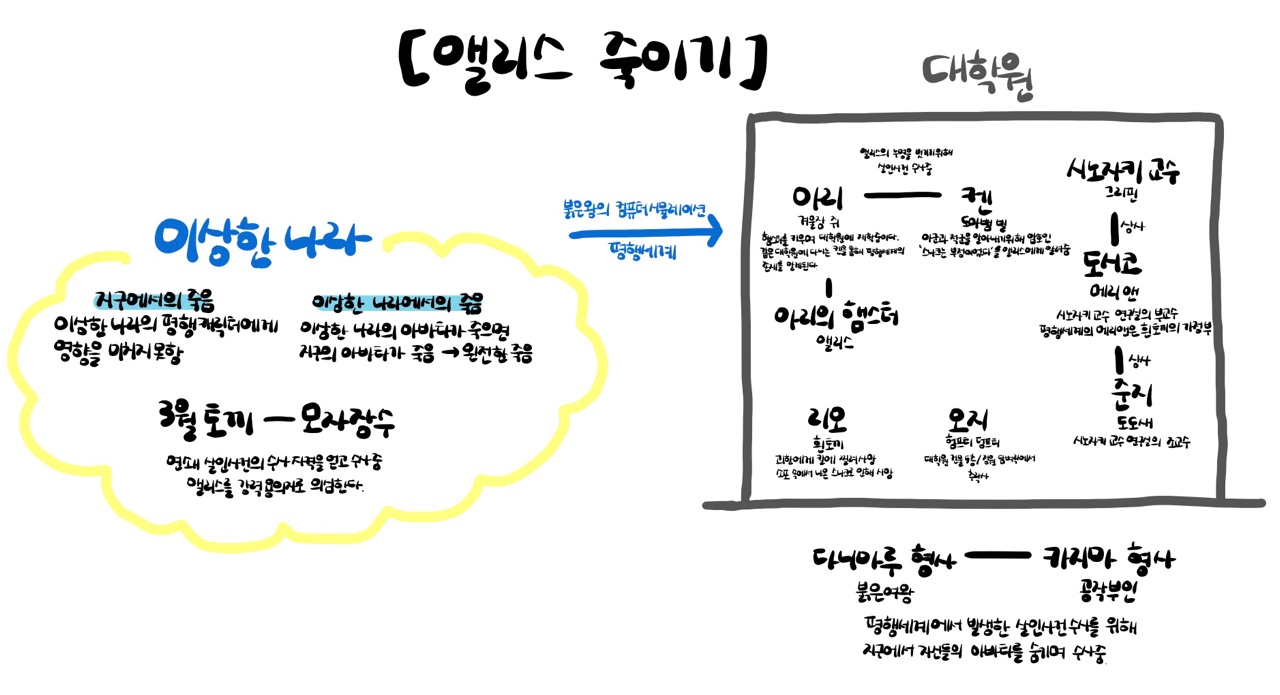 [앨리스 죽이기]
대학원
이상한 나라
지구에서의 죽음
이상한 나라의 평행캐릭터에게
영향을 미치지 못함
이상한 나라에서의 죽음
이상한 나라의 아바타가 죽으면
지구의 아바타가 죽음 → 완전한 죽음
3월 토끼 — 모자장수
연쇄 살인사건의 수사 자격을 얻고 수사중
앨리스를 강력 용의자로 의심한다.
붉은왕의 컴퓨터시뮬레이션
평행세계
앨리스의 누명을 벗기위해
살인사건 수사중
아리 — 켄
겨울잠 쥐
도마뱀 빌
햄스터를 키우며 대학원에 재학중이다.
같은 대학원에 다니는 켄을 통해 평행세계의
존재를 알게된다
아군과 적군을 알아내기위해 암호인
'스나크는 부점이었다'를 앨리스에게 알려줌
아리의 햄스터
앨리스
리오
흰토끼
괴한에게 칼에 찔려사망
소포 속에서 나온 스나크로 인해 사망
오지
험프티 덤프티
대학원 건물 옥층/정원 담벼락에서
추락사
시노자키 교수
그리핀
상사
도시코
메리앤
시노자키 교수 연구실의 부교수
평행세계의 메리앤은 흰토끼의 가정부
상사
준지
도도새
시노자키 교수 연구실의 조교수
다니마루 형사 — 카지마 형사
붉은여왕
공작부인
평행세계에서 발생한 살인사건수사를 위해
지구에서 자신들의 아바타를 숨기며 수사중